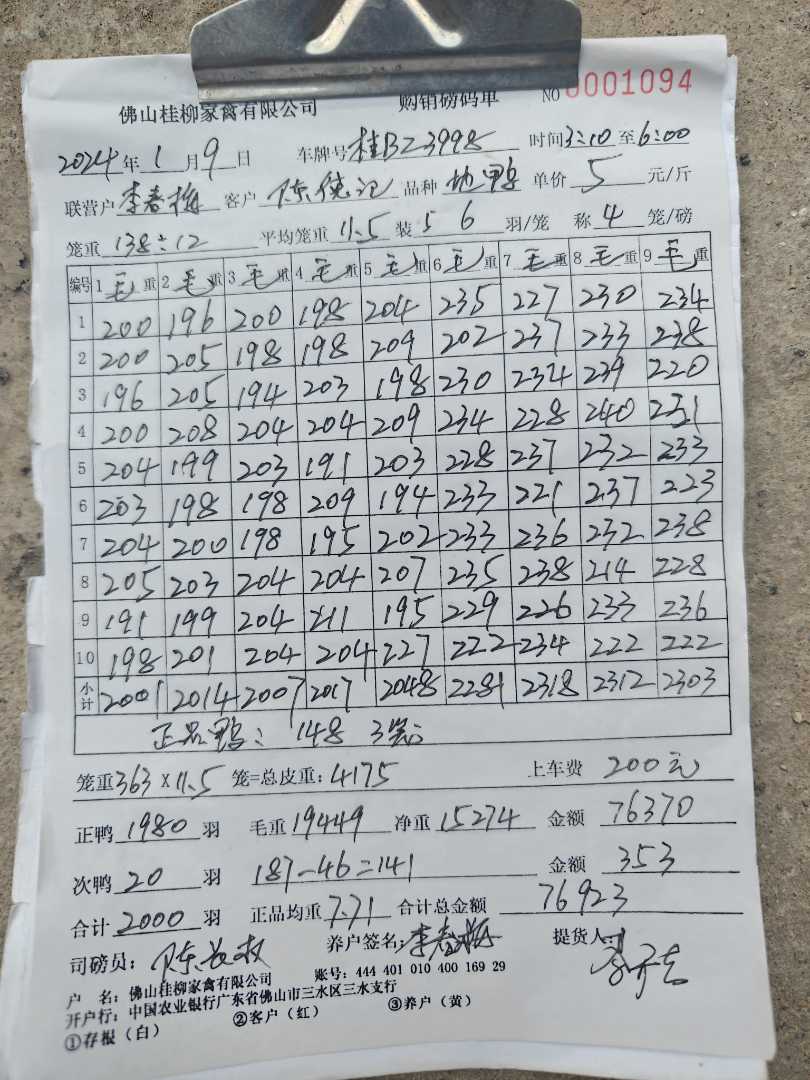 佛山桂柳家禽有限公司 购销磅码单 NO 0001094
2024年1月9日 车牌号桂BZ3998 时间3:10至6:00
联营户李春梅 客户陈德记 品种地鸭 单价5元/斤
笼重138÷12 平均笼重11.5 装5 6羽/笼 称4笼/磅
编号 1毛重 2毛重 3毛重 4毛重 5毛重 6毛重 7毛重 8毛重 9毛重
1 200 196 200 198 204 235 227 230 234
2 200 205 198 198 209 202 237 233 238
3 196 205 194 203 198 230 234 239 220
4 200 208 204 204 209 234 228 240 231
5 204 199 203 191 203 228 237 232 233
6 203 198 198 209 194 233 221 237 223
7 204 200 198 195 202 233 236 232 238
8 205 203 204 204 207 235 238 214 228
9 191 199 204 211 195 229 226 233 236
10 198 201 204 204 227 222 234 222 222
小计 2001 2014 2007 2017 2048 2281 2318 2312 2303
正品鸭: 148 3笼
笼重363×11.5笼=总皮重:4175 上车费200元
正鸭1980羽 毛重19449 净重15274 金额76370
次鸭20羽 187-46=141 金额353
合计2000羽 正品均重7.71 合计总金额76923
司磅员: 陈 养户签名:李春梅 提货人:
户 名:佛山桂柳家禽有限公司 账号:444 401 010 400 169 29
开户行:中国农业银行广东省佛山市三水区三水支行
①存根(白) ②客户(红) ③养户(黄)